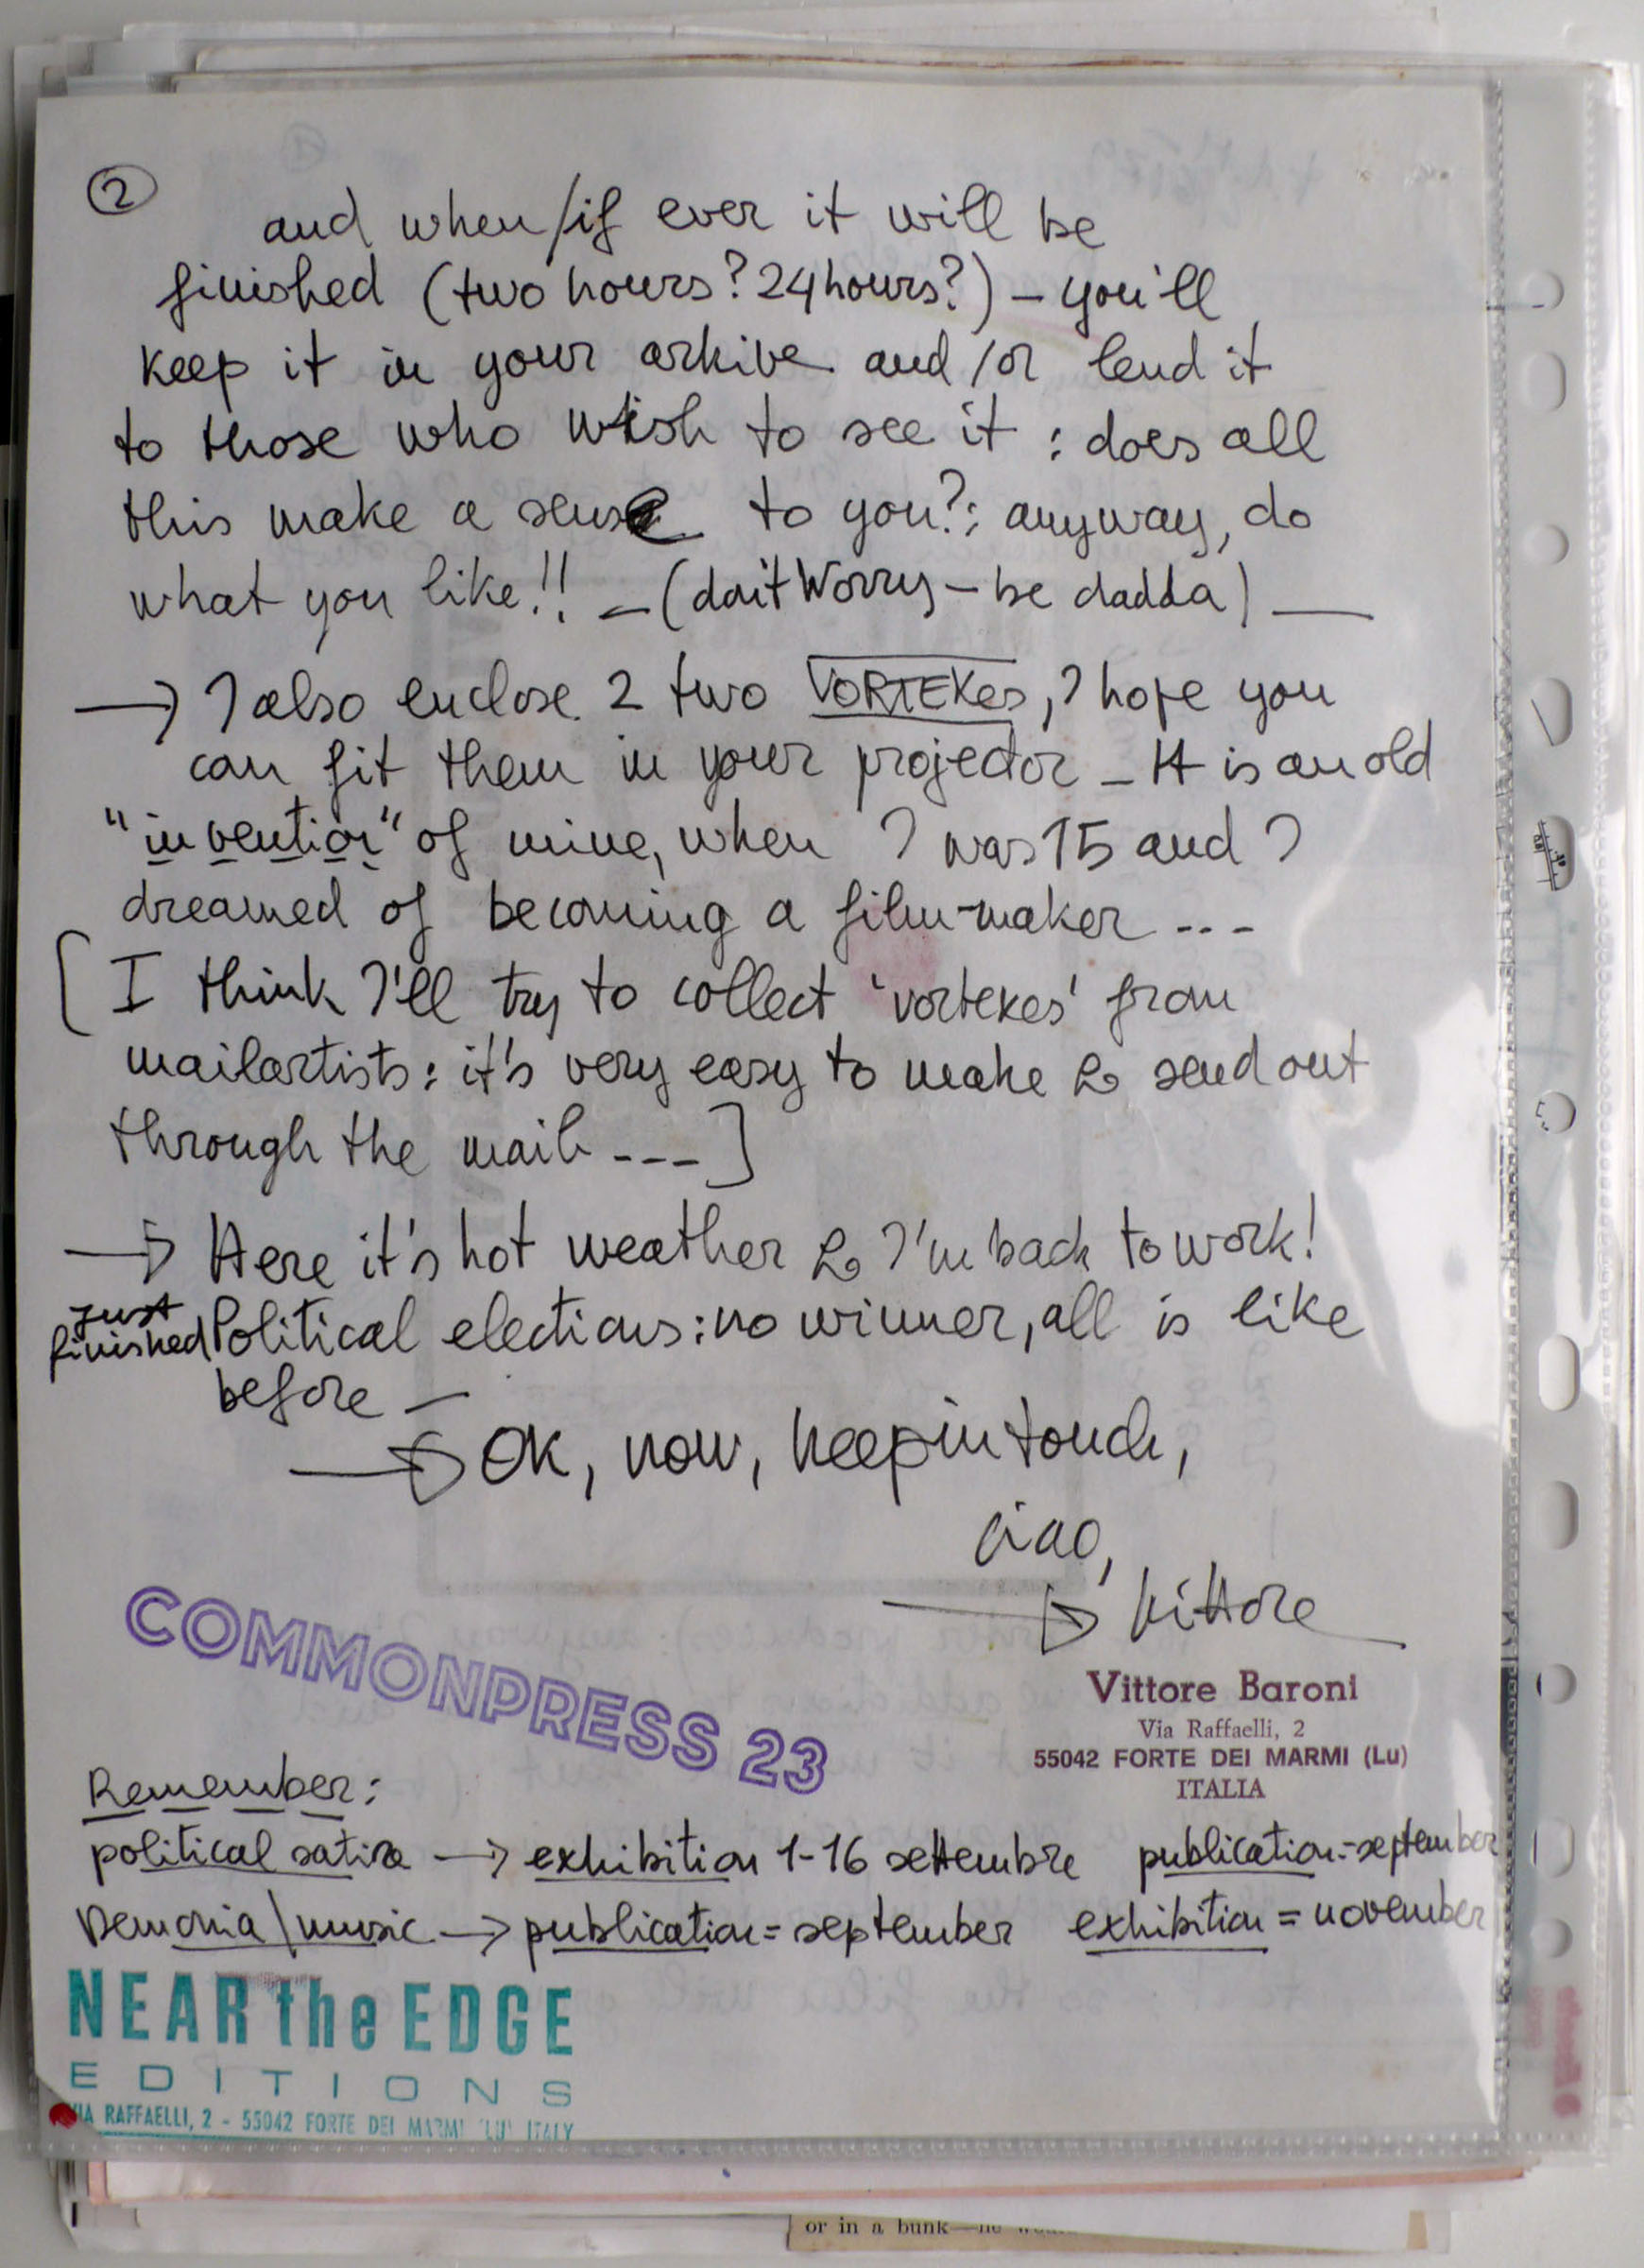 2
and when/if ever it will be
finished (two hours? 24 hours?) - you'll
keep it in your arkive and/or lend it
to those who wish to see it : does all
this make a sense to you?: anyway, do
what you like!! - (don't worry - be dadda) —
→ I also enclose 2 two VORTEKes, I hope you
can fit them in your projector - It is an old
"invention" of mine, when I was 15 and I
dreamed of becoming a film-maker ---
[I think I'll try to collect 'vortekes' from
mailartists: it's very easy to make & send out
through the mail ---]
→ Here it's hot weather & I'm back to work!
just
finished Political elections: no winner, all is like
before -
→ OK, now, keep in touch,
ciao,
→ Vittore
COMMONPRESS 23
Vittore Baroni
Via Raffaelli, 2
55042 FORTE DEI MARMI (Lu)
ITALIA
Remember:
political satire → exhibition 1-16 settembre publication=september
Demonia\music → publication= september exhibition = november
NEAR the EDGE
EDITIONS
VIA RAFFAELLI, 2 - 55042 FORTE DEI MARMI (LU) ITALY
or in a bunk—he